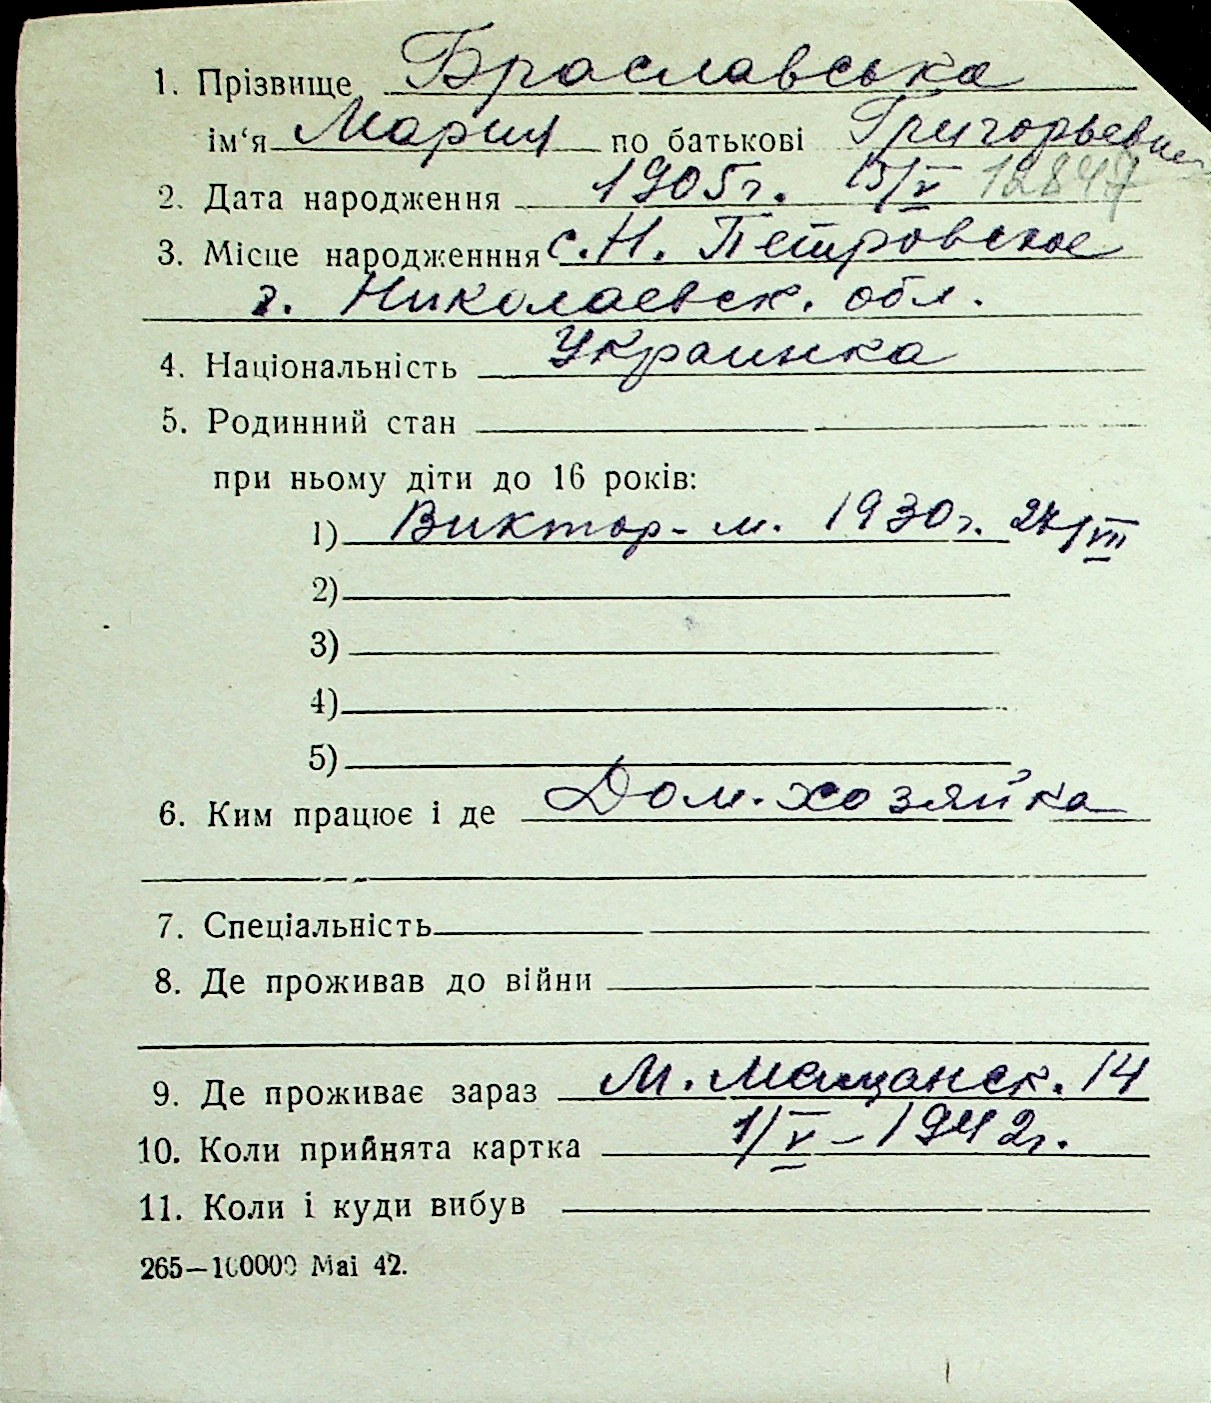 1. Прізвище Браславська
ім‘я Мария по батькові Григорьевна
2. Дата народження 1905г. 15/V 12847
3. Місце народженння с. Н. Петровское
г. Николаевск. обл.
4. Національність Украинка
5. Родинний стан
при ньому діти до 16 років:
1) Виктор - м. 1930г. 24/VII
2)
3)
4)
5)
6. Ким працює і де Дом. хозяйка
7. Спеціальність
8. Де проживав до війни
9. Де проживає зараз М. Мещанск. 14
10. Коли прийнята картка 1/V - 1942г.
11. Коли і куди вибув
265—100000 Mai 42.